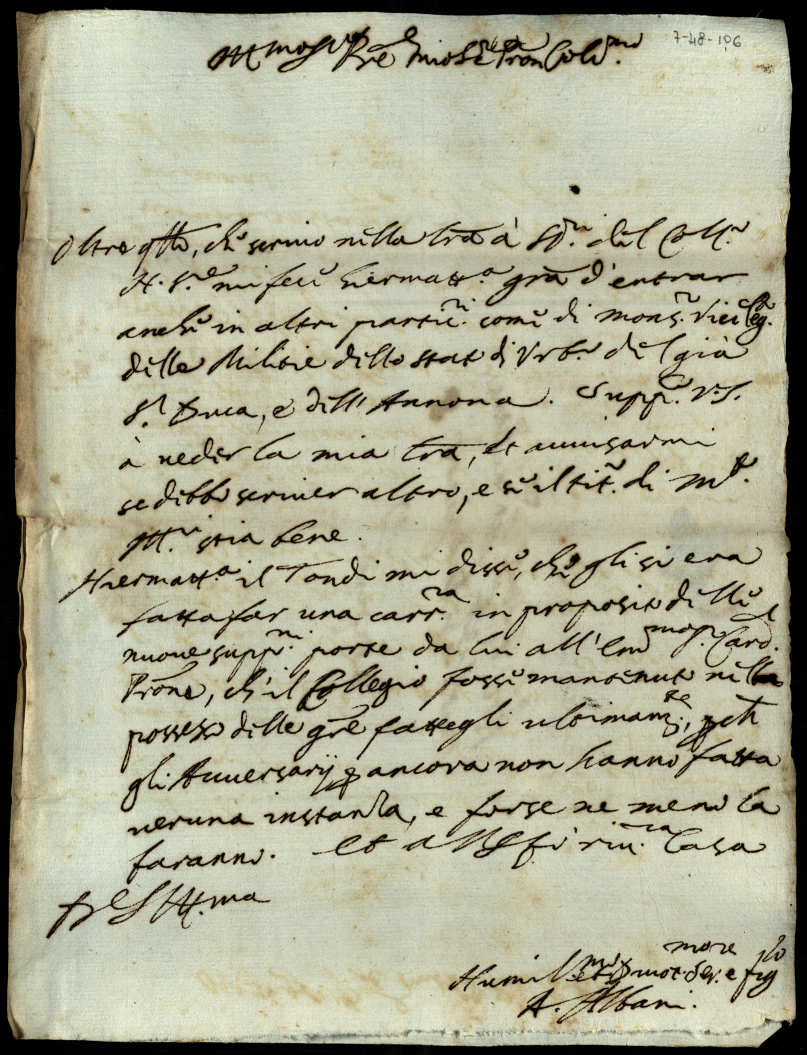 7-48-106
Ill.mo Sig.r P̃re mio Sig.re e P̃ron Col.mo
Oltre q̃llo, che scrivo nella lr̃a à Sig.ri del Coll.o
N. S.re mi fece hiermatt.a gr̃a d'entrar
anche in altri partic.ri come di mons.r Viceleg.
delle Militie dello Stato di Urb.o del già
S.r Duca, e dell'Annona. Supp.co V.S.
à veder la mia lr̃a, et avvisarmi
se debbo scriver altro, e se il tit.o di m.to
Ill.ri stia bene.
Hiermatt.a il Tondi mi disse, che gli si era
fatta far una carr.ta in proposito delle
nuove supp.ni porte da lui all'Em.mo Sig. Card.l
P̃rone, ch'il Collegio fosse mantenuto nella
possesso delle gr̃e fattegli ultimam.te, p̱ch
gli Avversarij p̱ ancora non hanno fatta
veruna instanza, e forse ne meno la
faranno. Et a V.S. fò riv.za Casa
Di V.S. Ill.ma
Humil.mo et Devot. Ser.re e fig.lo
A. Albani.